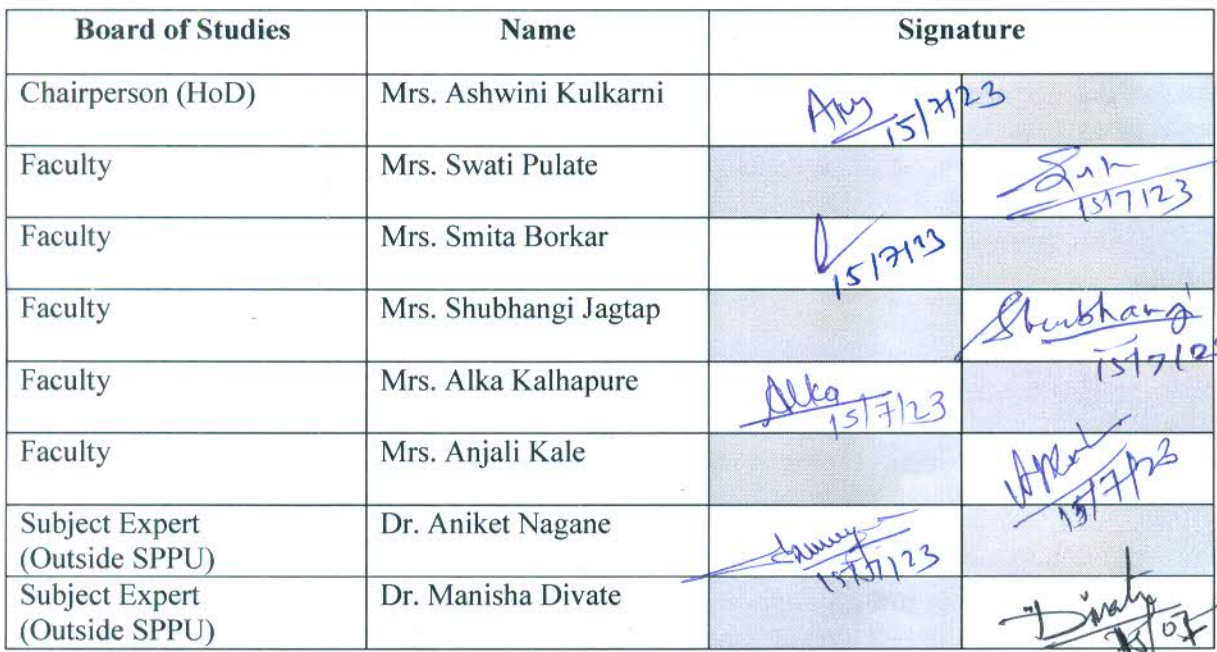 Board of Studies Name Signature
Chairperson (HoD) Mrs. Ashwini Kulkarni 15/7/23
Faculty Mrs. Swati Pulate 15/7/23
Faculty Mrs. Smita Borkar 15/7/23
Faculty Mrs. Shubhangi Jagtap Shubhangi
15/7/2
Faculty Mrs. Alka Kalhapure Alka
15/7/23
Faculty Mrs. Anjali Kale 15/7/23
Subject Expert Dr. Aniket Nagane
(Outside SPPU) 15/7/23
Subject Expert Dr. Manisha Divate
(Outside SPPU) 15/07